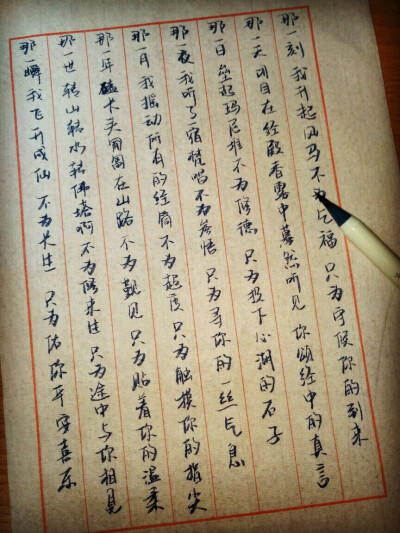 那一刻 我升起风马 不为乞福 只为守候你的到来
那一天 闭目在经殿香雾中 蓦然听见 你颂经中的真言
那一日 垒起玛尼堆 不为修德 只为投下心湖的石子
那一夜 我听了一宿梵唱 不为参悟 只为寻你的一丝气息
那一月 我摇动所有的经筒 不为超度 只为触摸你的指尖
那一年 磕长头匍匐在山路 不为觐见 只为贴着你的温柔
那一世 转山转水转佛塔啊 不为修来生 只为途中与你相见
那一瞬 我飞升成仙 不为长生 只为佑你平安喜乐